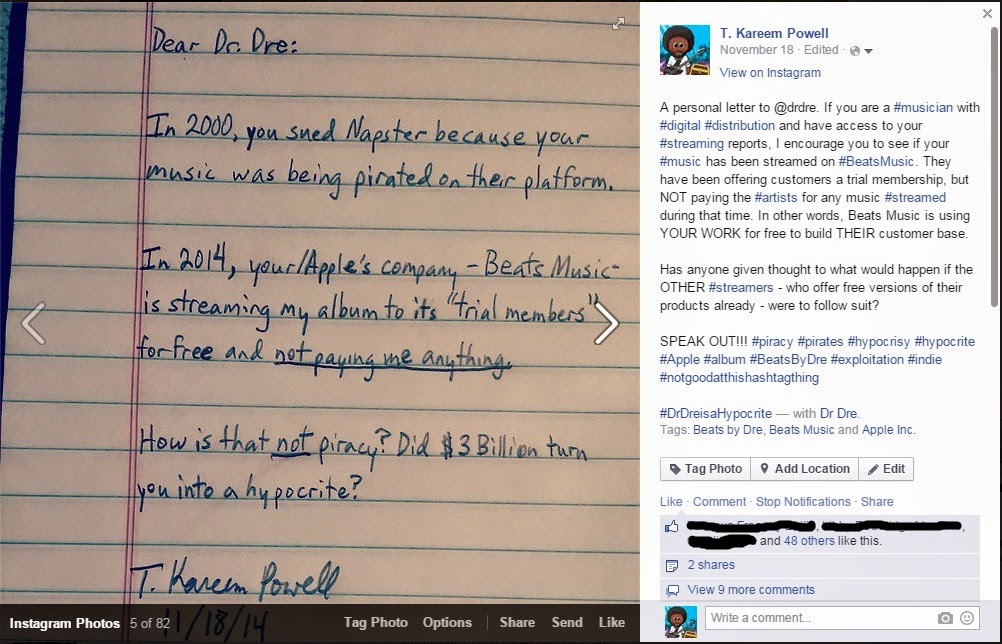 Dear Dr. Dre:
In 2000, you sued Napster because your
music was being pirated on their platform.
In 2014, your/Apple's company - Beats Music-
is streaming my album to it's "trial members"
for free and not paying me anything.
How is that not piracy? Did $3 Billion turn
you into a hypocrite?
T. Kareem Powell
11/18/14
Instagram Photos 5 of 82 Tag Photo Options Share Send Like
T. Kareem Powell
November 18 · Edited ·
View on Instagram
A personal letter to @drdre. If you are a #musician with
#digital #distribution and have access to your
#streaming reports, I encourage you to see if your
#music has been streamed on #BeatsMusic. They
have been offering customers a trial membership, but
NOT paying the #artists for any music #streamed
during that time. In other words, Beats Music is using
YOUR WORK for free to build THEIR customer base.
Has anyone given thought to what would happen if the
OTHER #streamers - who offer free versions of their
products already - were to follow suit?
SPEAK OUT!!! #piracy #pirates #hypocrisy #hypocrite
#Apple #album #BeatsByDre #exploitation #indie
#notgoodatthishashtagthing
#DrDreisaHypocrite — with Dr Dre.
Tags: Beats by Dre, Beats Music and Apple Inc.
Tag Photo Add Location Edit
Like · Comment · Stop Notifications · Share
and 48 others like this.
2 shares
View 9 more comments
Write a comment...